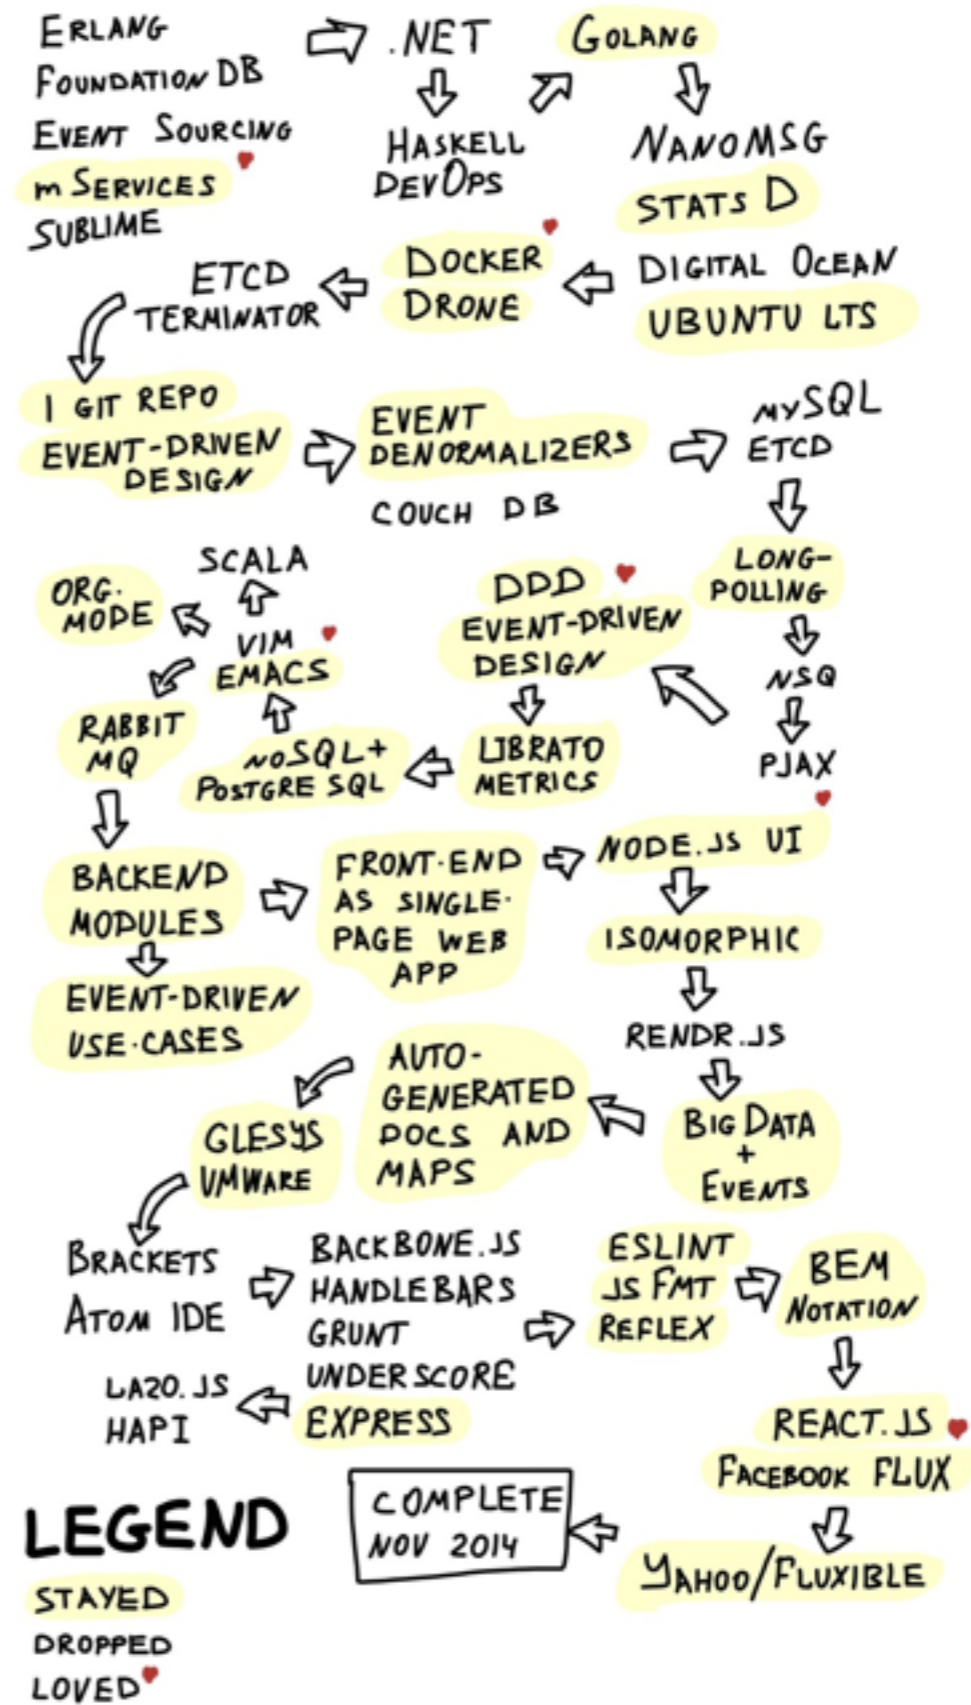 ERLANG
FOUNDATION DB
EVENT SOURCING
mSERVICES
SUBLIME
.NET
HASKELL
DEVOPS
GOLANG
NANOMSG
STATS D
DIGITAL OCEAN
UBUNTU LTS
DOCKER
DRONE
ETCD
TERMINATOR
1 GIT REPO
EVENT-DRIVEN
DESIGN
EVENT
DENORMALIZERS
COUCH DB
MySQL
ETCD
LONG-
POLLING
NSQ
PJAX
DDD
EVENT-DRIVEN
DESIGN
LIBRATO
METRICS
NOSQL+
POSTGRE SQL
VIM
EMACS
SCALA
ORG.
MODE
RABBIT
MQ
BACKEND
MODULES
EVENT-DRIVEN
USE-CASES
FRONT-END
AS SINGLE-
PAGE WEB
APP
NODE.JS UI
ISOMORPHIC
RENDR.JS
BIG DATA
+
EVENTS
AUTO-
GENERATED
DOCS AND
MAPS
GLESYS
VMWARE
BRACKETS
ATOM IDE
BACKBONE.JS
HANDLEBARS
GRUNT
UNDERSCORE
EXPRESS
LAZO.JS
HAPI
ESLINT
JS FMT
REFLEX
BEM
NOTATION
REACT.JS
FACEBOOK FLUX
YAHOO/FLUXIBLE
COMPLETE
NOV 2014
LEGEND
STAYED
DROPPED
LOVED